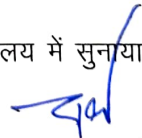 लय में सुनाया